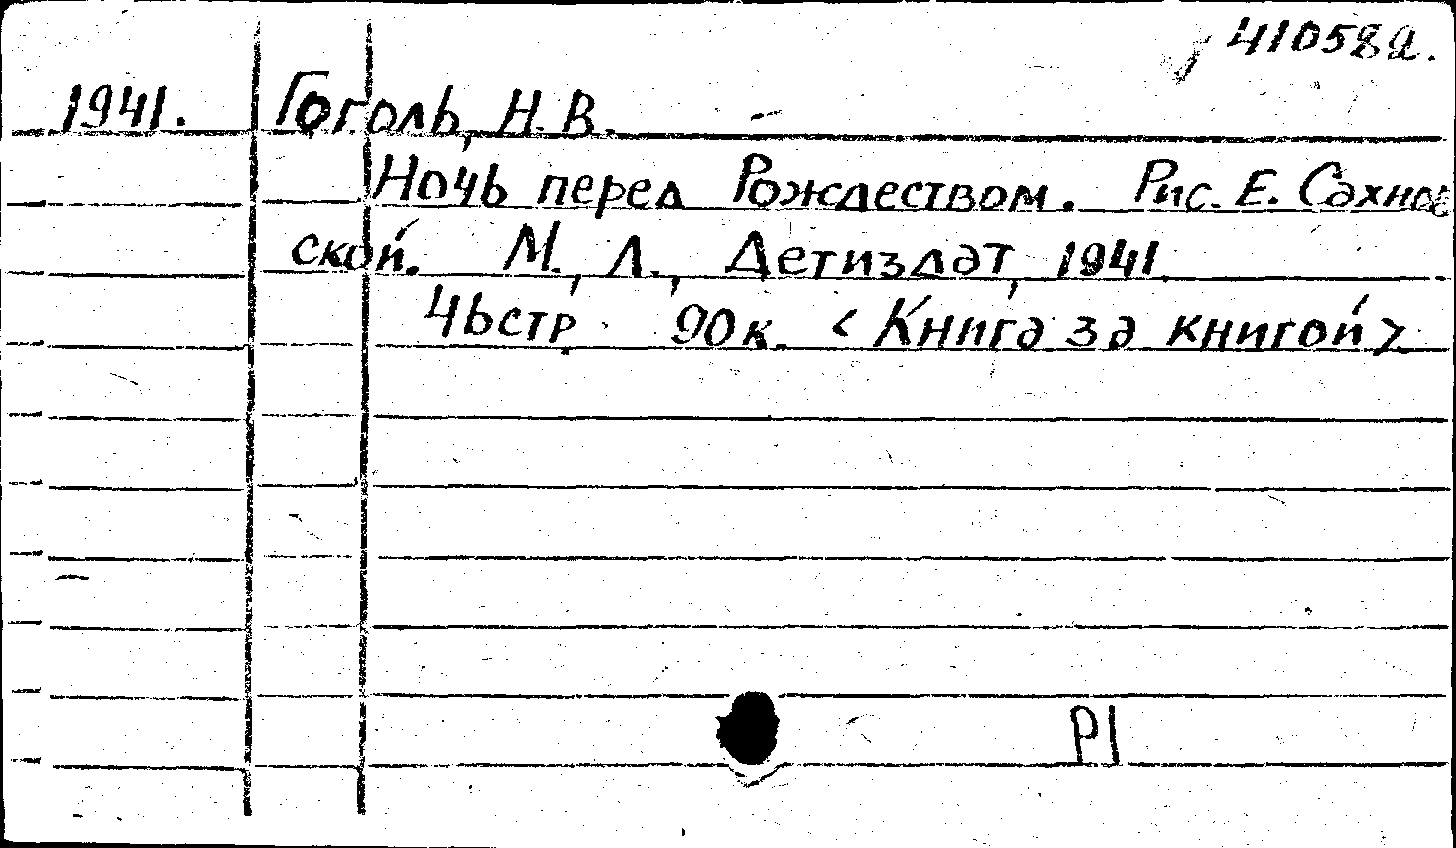 410582.
1941. Гоголь, Н. В.
Ночь перед Рождеством. Рис. Е. Сахнов
ской. М., Л., Детиздат, 1941.
46 стр. 90 к. <Книга за книгой>
Р1